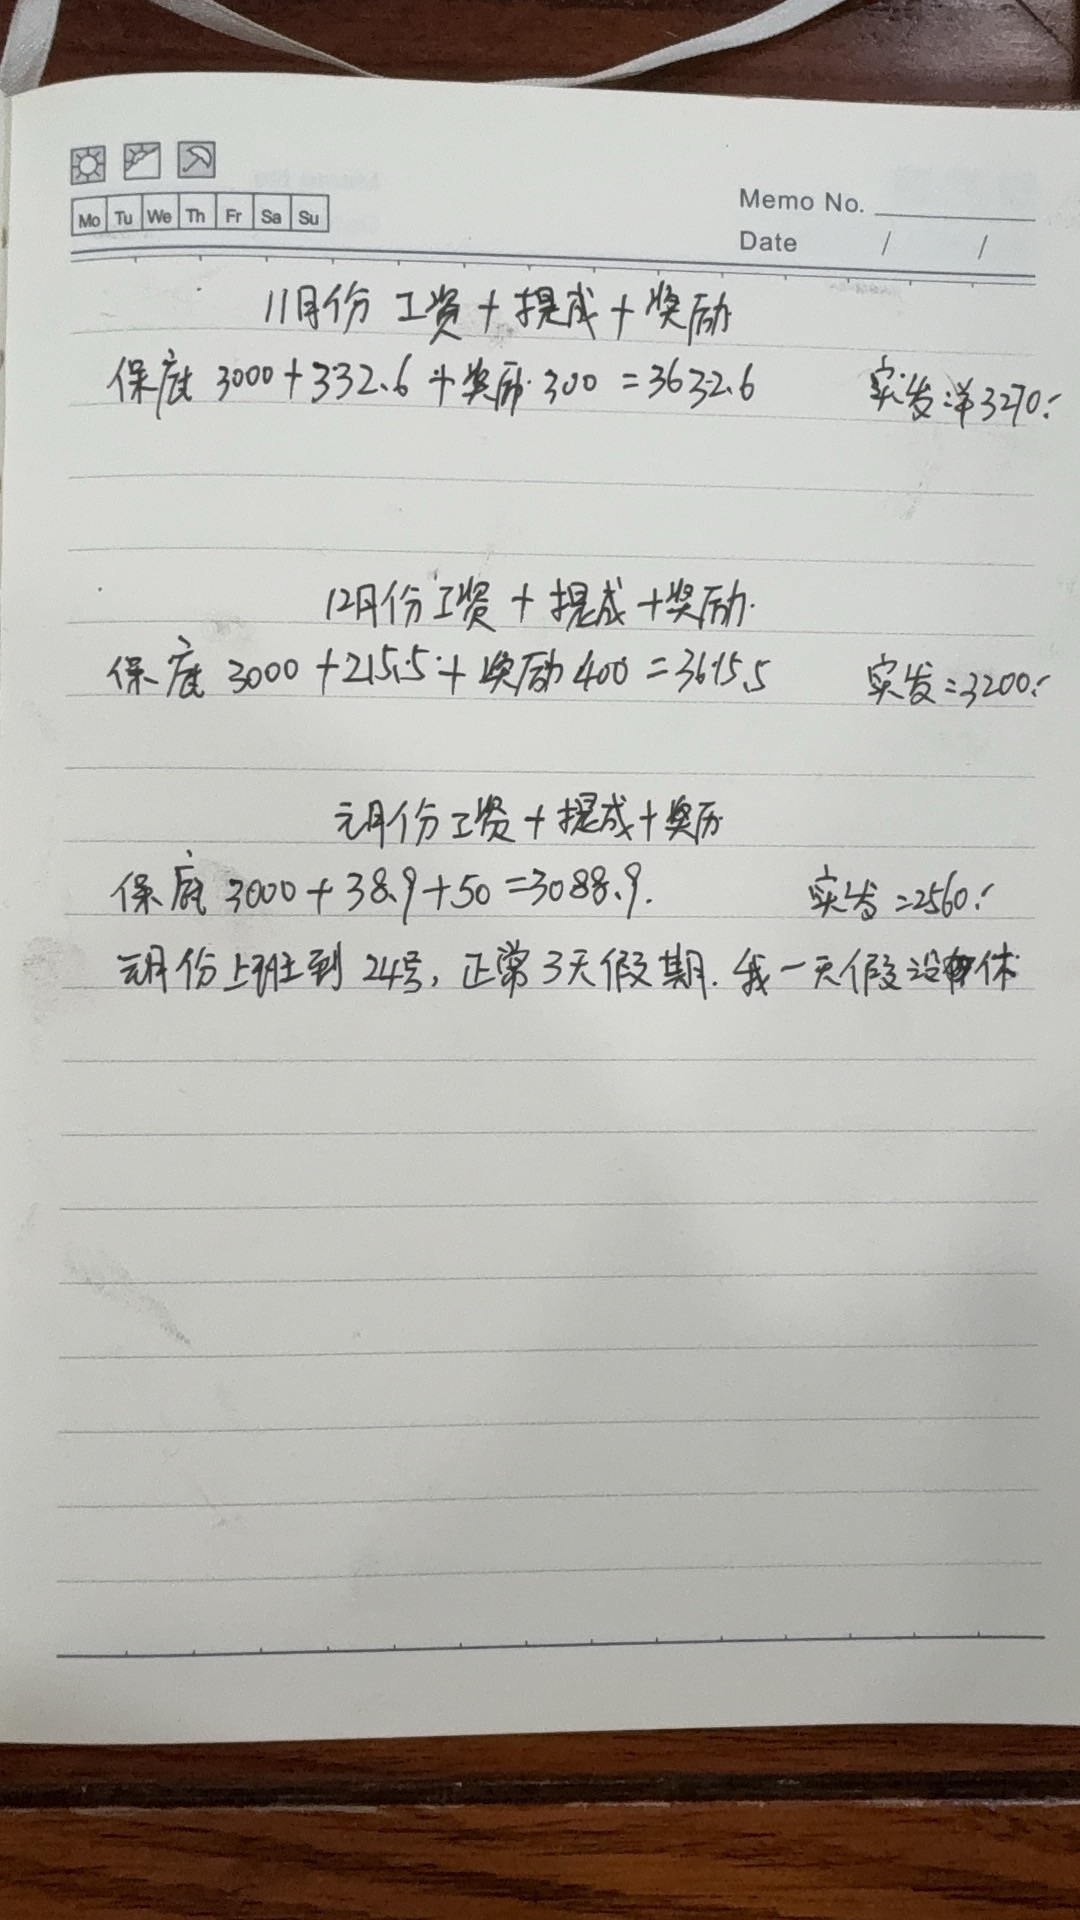 Mo Tu We Th Fr Sa Su
Memo No.
Date / /
11月份 工资+提成+奖励
保底 3000+332.6+奖励 300=3632.6 实发:洋3270.
12月份工资+提成+奖励.
保底 3000+215.5+奖励400=3615.5 实发=3200.
元月份工资+提成+奖历
保底 3000+38.9+50=3088.9. 实发=2560.
元月份上班到 24号, 正常3天假期. 我一天假没休